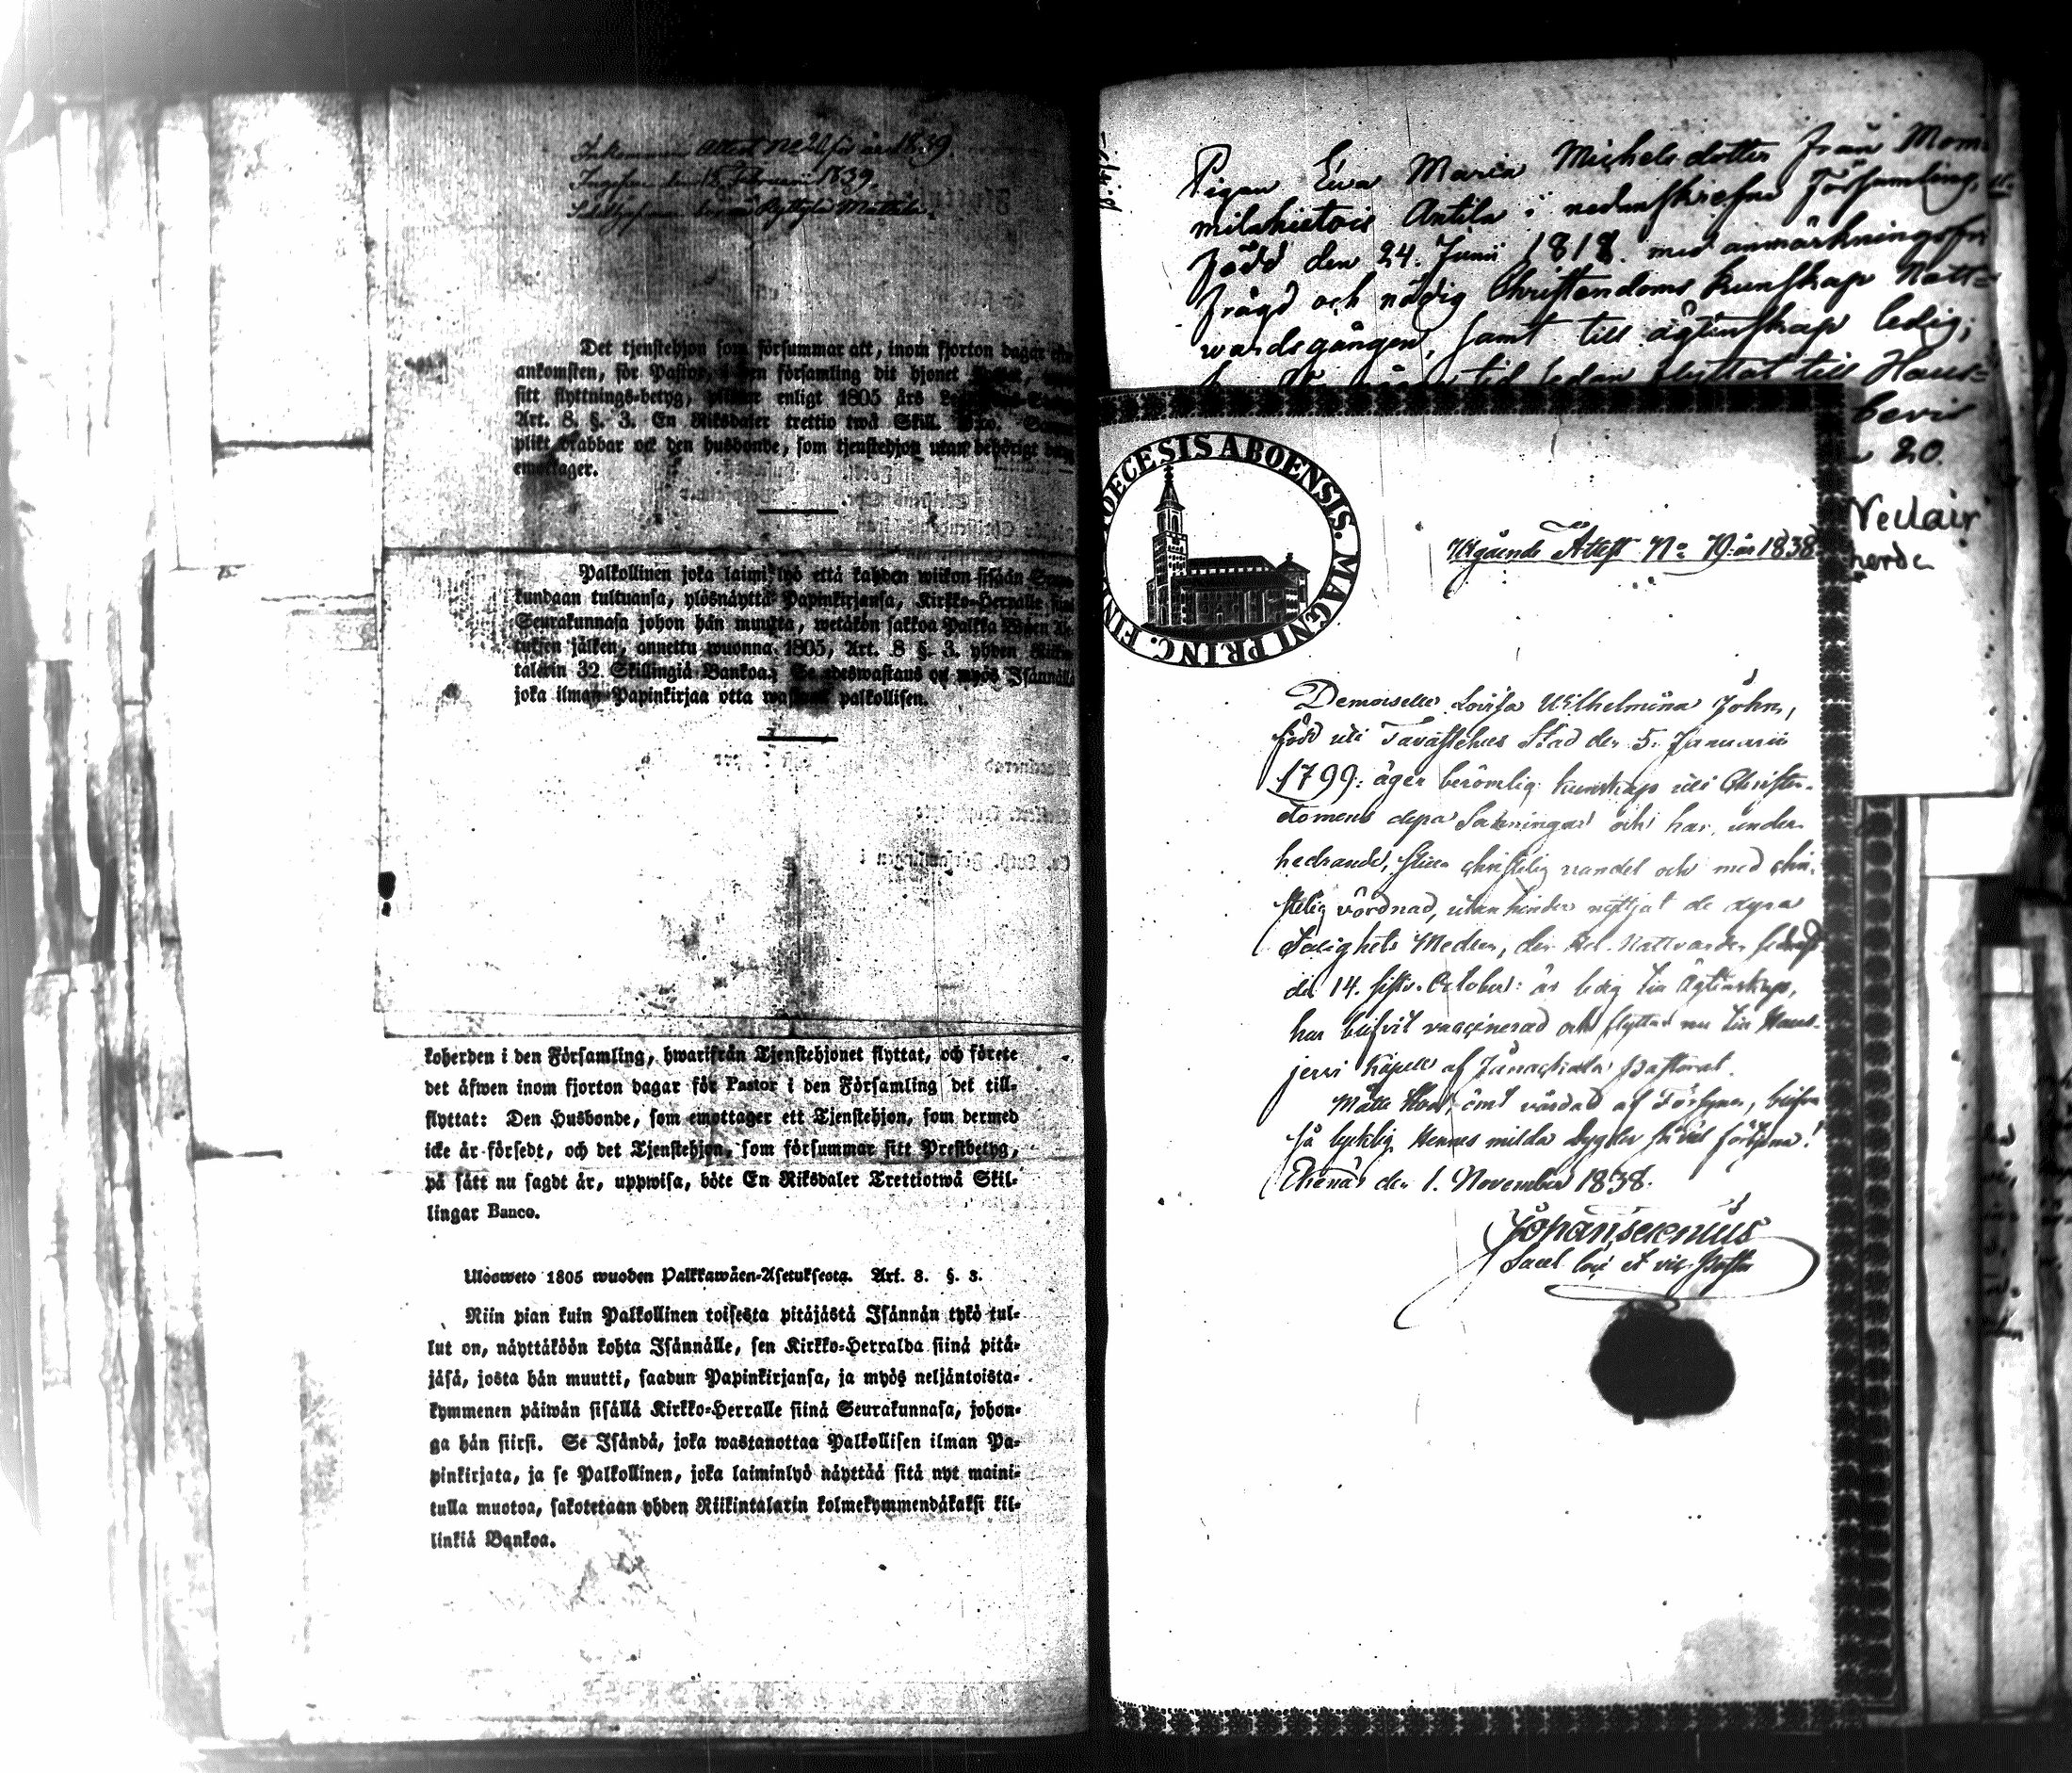 Inkommen Attest No 21 för år 1839.
Ingifven den 15 Februari 1839.
Mattila.
Det tjenstehjon som försummar att, inom fjorton dagar efter
ankomsten, för Pastor, i den församling dit hjonet
sitt flyttnings-betyg, enligt 1805 års
Art. 8. §. 3. En Riksdaler trettio twå Skill. Bco.
plikt drabbar ock den husbonde, som tjenstehjon utan behörigt
emottager.
Palkollinen joka laiminlyö että kahden wiikon sisään
kundaan tultuansa, ylösnäyttä Papinkirjansa, Kirkko-Herralle
Seurakunnasa johon hän muutta, wetäkön sakkoa Palkka Wäen
tuksen jälken, annettu wuonna 1805, Art. 8 §. 3. yhden
talarin 32 Skillingiä Bankoa; on myös Isännällä
joka ilman Papinkirjaa otta palkollisen.
koherden i den Församling, hwarifrån Tjenstehjonet flyttat, och förete
det äfwen inom fjorton dagar för Pastor i den Församling det till-
flyttat: Den Husbonde, som emottager ett Tjenstehjon, som dermed
icke är försedt, och det Tjenstehjon, som försummar sitt Prestbetyg,
på sätt nu sagdt är, uppwisa, böte En Riksdaler Trettiotwå Skil-
lingar Banco.
Uloosweto 1805 wuoden Palkkawäen-Asetuksesta. Art. 8. §. 3.
Niin pian kuin Palkollinen toisesta pitäjästä Isännän tykö tul-
lut on, näyttäköön kohta Isännälle, sen Kirkko-Herralda siinä pitä-
jäsä, josta hän muutti, saadun Papinkirjansa, ja myös neljäntoista-
kymmenen päiwän sisällä Kirkko-Herralle siinä Seurakunnasa, johon-
ga hän siirsi. Se Isändä, joka wastanottaa Palkollisen ilman Pa-
pinkirjata, ja se Palkollinen, joka laiminlyö näyttää sitä nyt maini-
tulla muotoa, sakotetaan yhden Riikintalarin kolmekymmendäkaksi kil-
linkiä Bankoa.
Pigan Ewa Maria Michelsdotter från Mom-
milahietois Antila i nedanskrefne Församling,
född den 24. Junii 1818. med anmärkningsfri
frägd och nödig Christendoms kunskap Natt-
wardsgången, samt till ägtenskap ledig;
tid sedan flyttat till Haus-
bevis
20.
Neclair
herde
DIOECESIS ABOENSIS. MAGNI PRINC. FINL
Utgående Attest No 79: år 1838
Demoiselle Lovisa Wilhelmina John,
född uti Tavastehus Stad den 5. Januarii
1799: äger berömlig kunskap uti Christen-
domens dyra Sanningar och har under
hedrande, stilla christelig vandel och med chri-
stelig vördnad, utan hinder nyttjat de dyra
Salighets Medlen, den Hel. Nattvarden sednast
den 14. sistl. October: är ledig till Ägtenskap,
har blifvit vaccinerad och flyttar nu till Haus-
jervi Kapell af Janackala Pastorat.
Måtte Hon, ömt vårdad af Försynen, blifva
så lycklig Hennes milda dygder så väl förtjena!
Ekenäs den 1. November 1838.
Johan
Sacel loci et vic: Pastor